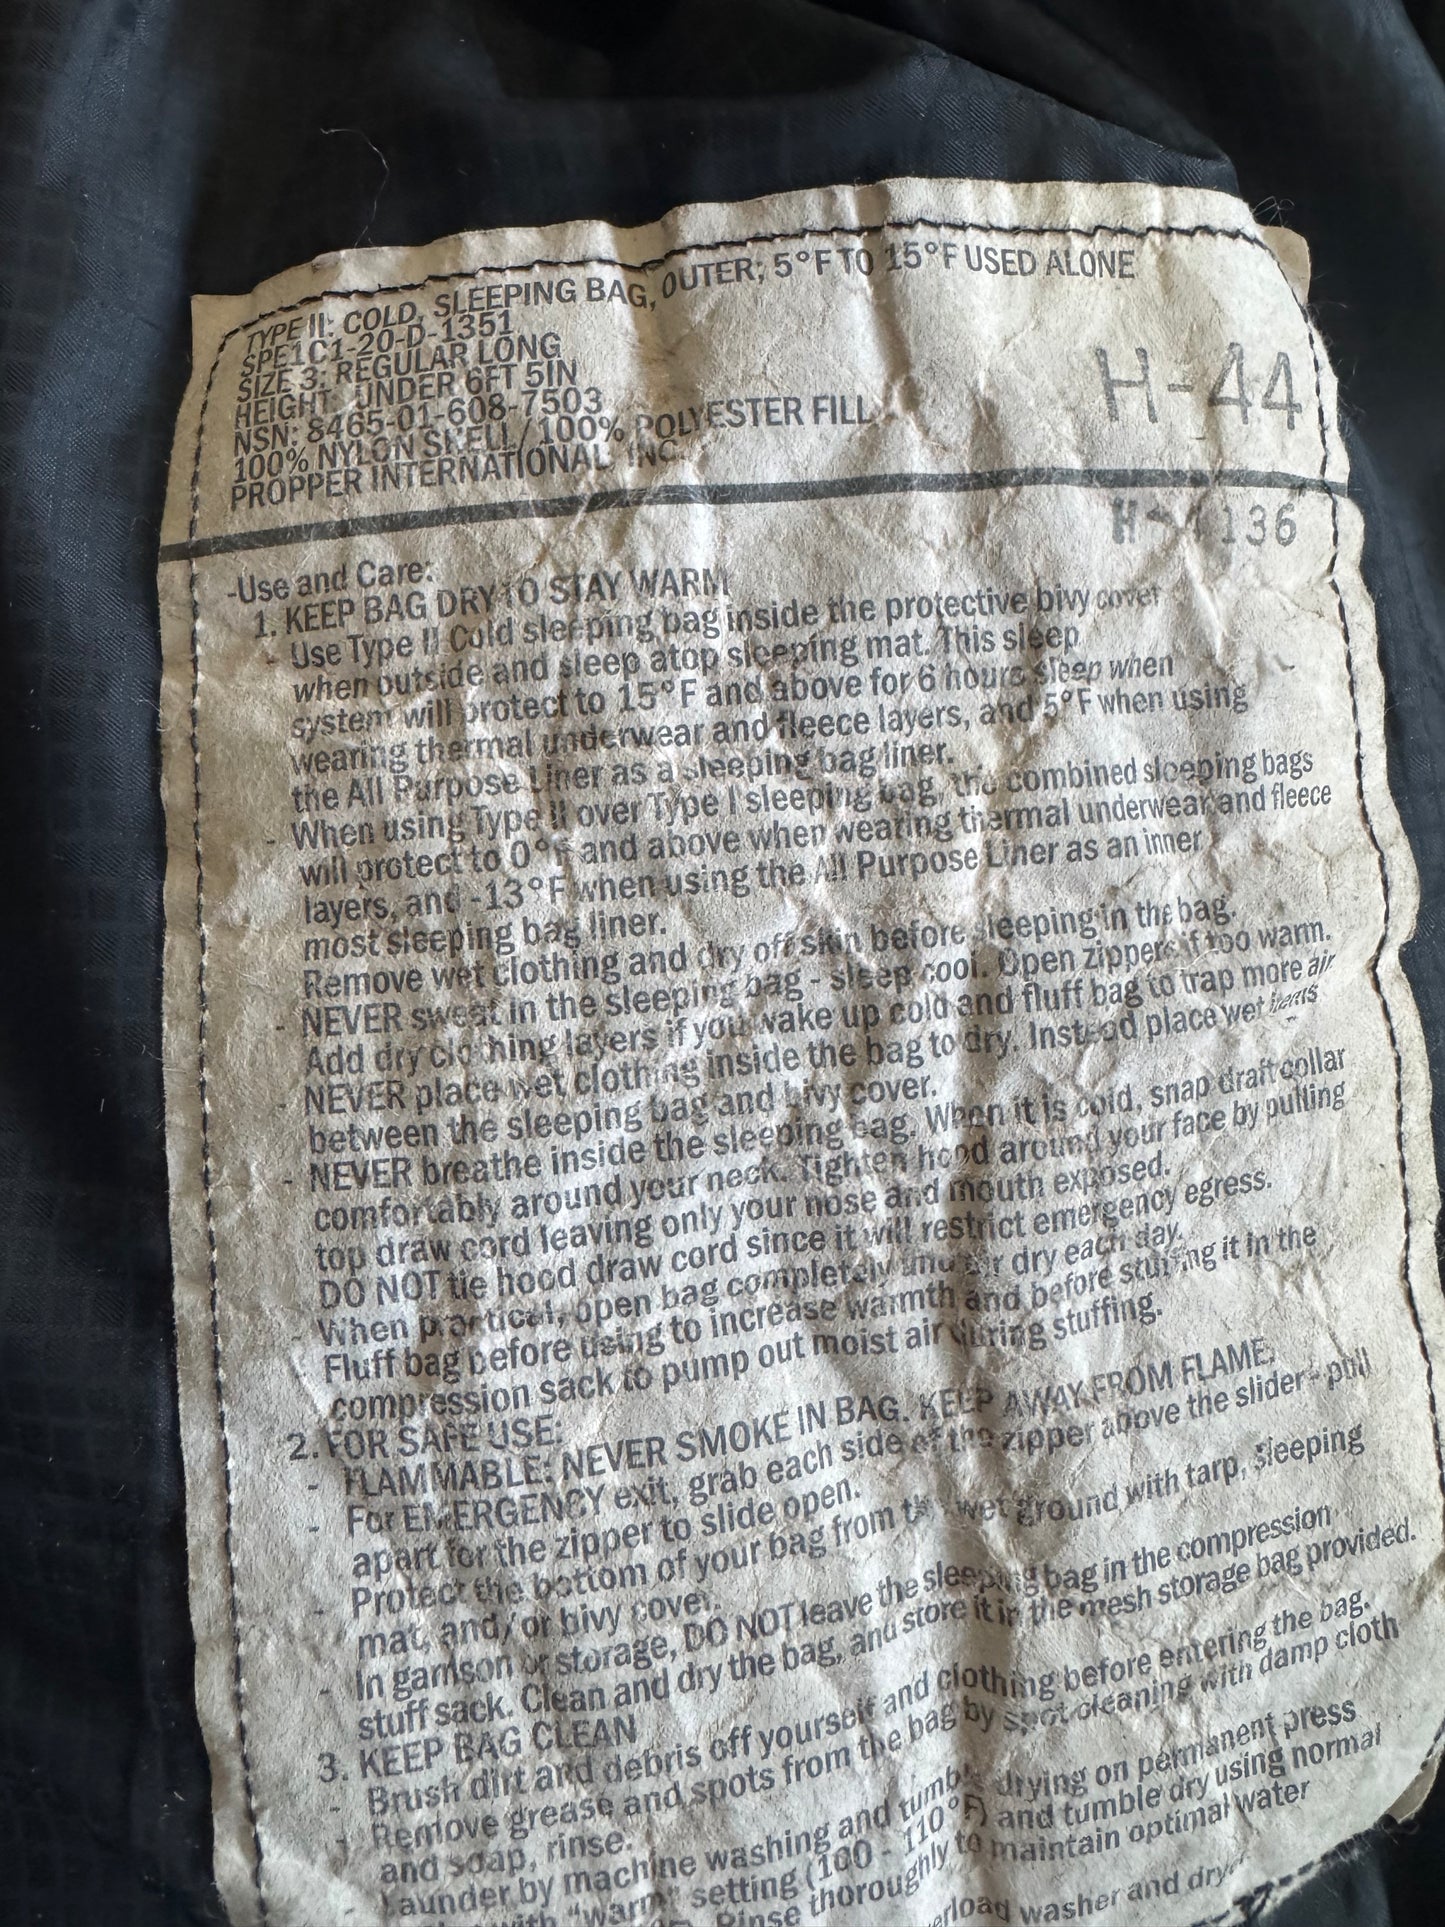 TYPE II: COLD, SLEEPING BAG, OUTER; 5°F TO 15°F USED ALONE
SPE1C1-20-D-1351
SIZE 3: REGULAR LONG
HEIGHT: UNDER 6FT 5IN
NSN: 8465-01-608-7503
100% NYLON SHELL / 100% POLYESTER FILL
PROPPER INTERNATIONAL INC.
H-44
136
-Use and Care:
1. KEEP BAG DRY TO STAY WARM
- Use Type II Cold sleeping bag inside the protective bivy cover
when outside and sleep atop sleeping mat. This sleep
system will protect to 15°F and above for 6 hours sleep when
wearing thermal underwear and fleece layers, and 5°F when using
the All Purpose Liner as a sleeping bag liner.
- When using Type II over Type I sleeping bag, the combined sleeping bags
will protect to 0°F and above when wearing thermal underwear and fleece
layers, and -13°F when using the All Purpose Liner as an inner
most sleeping bag liner.
Remove wet clothing and dry off skin before sleeping in the bag.
- NEVER sweat in the sleeping bag - sleep cool. Open zippers if too warm.
Add dry clothing layers if you wake up cold and fluff bag to trap more air
- NEVER place wet clothing inside the bag to dry. Instead place wet items
between the sleeping bag and bivy cover.
- NEVER breathe inside the sleeping bag. When it is cold, snap draft collar
comfortably around your neck. Tighten hood around your face by pulling
top draw cord leaving only your nose and mouth exposed.
DO NOT tie hood draw cord since it will restrict emergency egress.
- When practical, open bag completely and air dry each day.
Fluff bag before using to increase warmth and before stuffing it in the
compression sack to pump out moist air during stuffing.
2. FOR SAFE USE:
- FLAMMABLE: NEVER SMOKE IN BAG. KEEP AWAY FROM FLAME.
- For EMERGENCY exit, grab each side of the zipper above the slider - pull
apart for the zipper to slide open.
- Protect the bottom of your bag from the wet ground with tarp, sleeping
mat, and/or bivy cover.
- In garrison or storage, DO NOT leave the sleeping bag in the compression
stuff sack. Clean and dry the bag, and store it in the mesh storage bag provided.
3. KEEP BAG CLEAN
- Brush dirt and debris off yourself and clothing before entering the bag.
- Remove grease and spots from the bag by spot cleaning with damp cloth
and soap, rinse.
- Launder by machine washing and tumble drying on permanent press
with "warm" setting (100 - 110°F) and tumble dry using normal
Rinse thoroughly to maintain optimal water
washer and dryer